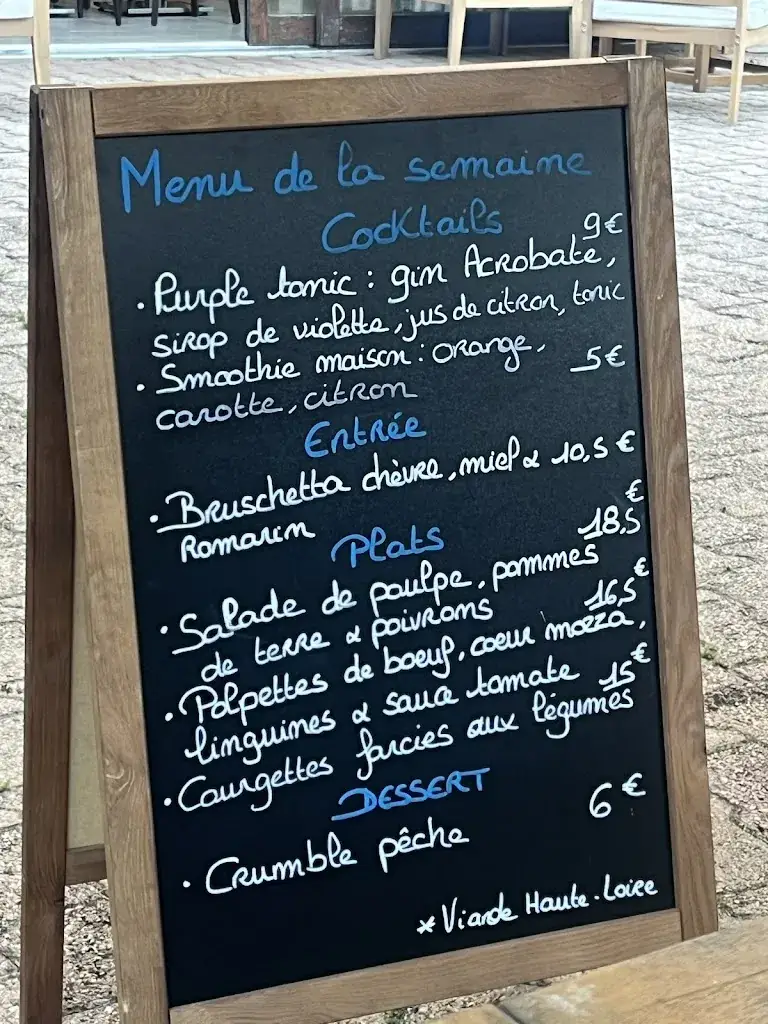 Menu de la semaine
Cocktails
9€
• Purple tonic : gin Acrobate,
sirop de violette, jus de citron, tonic
• Smoothie maison : orange, 5€
carotte, citron
Entrée
• Bruschetta chèvre, miel & 10,5 €
Romarin
Plats
• Salade de poulpe, pommes 18,5 €
de terre & poivrons
• Polpettes de boeuf, coeur mozza, 16,5 €
linguines & sauce tomate
• Courgettes farcies aux légumes 15 €
DESSERT
• Crumble pêche 6 €
* Viande Haute-Loire